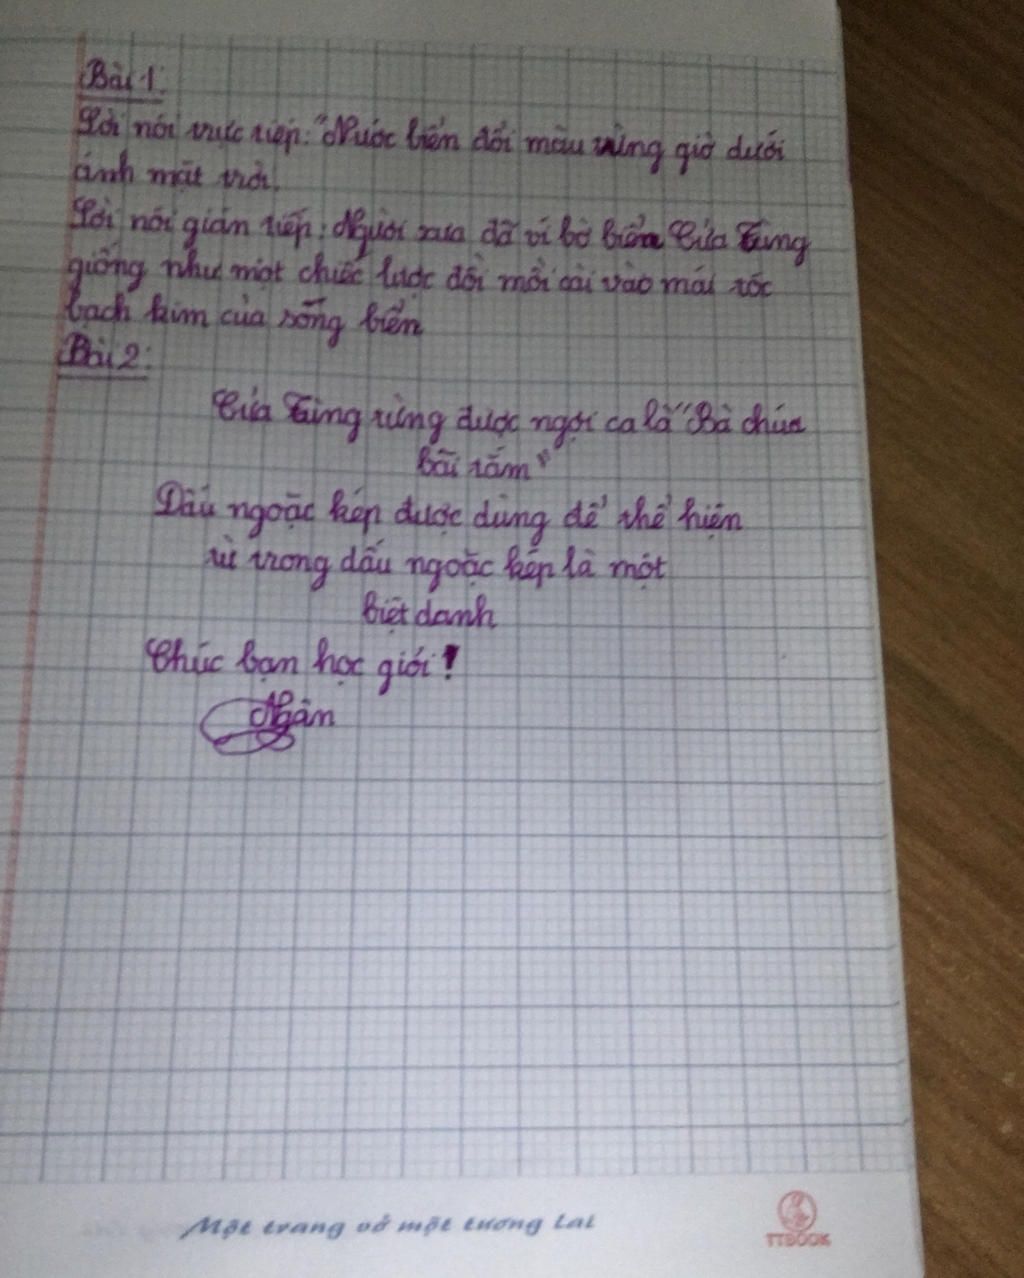 Bài 1:
Lời nói trực tiếp: "Nước biển đổi màu từng giờ dưới
ánh mặt trời.
Lời nói gián tiếp: Người xưa đã ví bờ biển Cửa Tùng
giống như một chiếc lược đồi mồi cài vào mái tóc
bạch kim của sóng biển
Bài 2:
Cửa Tùng từng được ngợi ca là "Bà chúa
bãi tắm"
Dấu ngoặc kép được dùng để thể hiện
từ trong dấu ngoặc kép là một
biệt danh
Chúc bạn học giỏi!
Ngân
Một trang vở một tương lai
TTBOOK